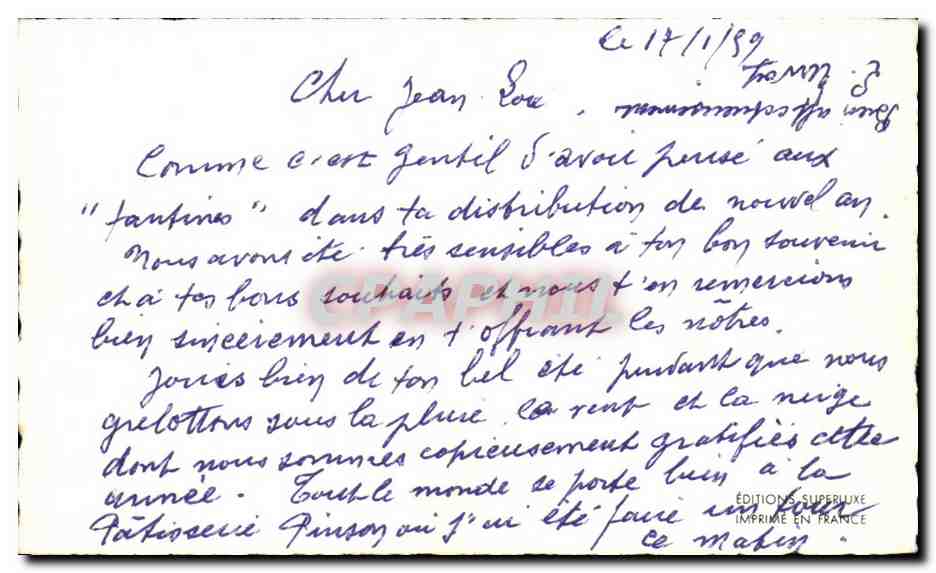 Le 17/1/59
Cher Jean Lou,
Comme c'est gentil d'avoir pensé aux
"tantines" dans ta distribution de nouvel an.
Nous avons été très sensibles à ton bon souvenir
et à tes bons souhaits et nous t'en remercions
bien sincèrement en t'offrant les nôtres.
Jouis bien de ton bel été pendant que nous
grelottons sous la pluie le vent et la neige
dont nous sommes copieusement gratifiés cette
année. Tout le monde se porte bien à la
Pâtisserie Pinson où j'ai été faire un tour
ce matin.
Bien affectueusement
CPAPHIL
EDITIONS SUPERLUXE
IMPRIMÉ EN FRANCE